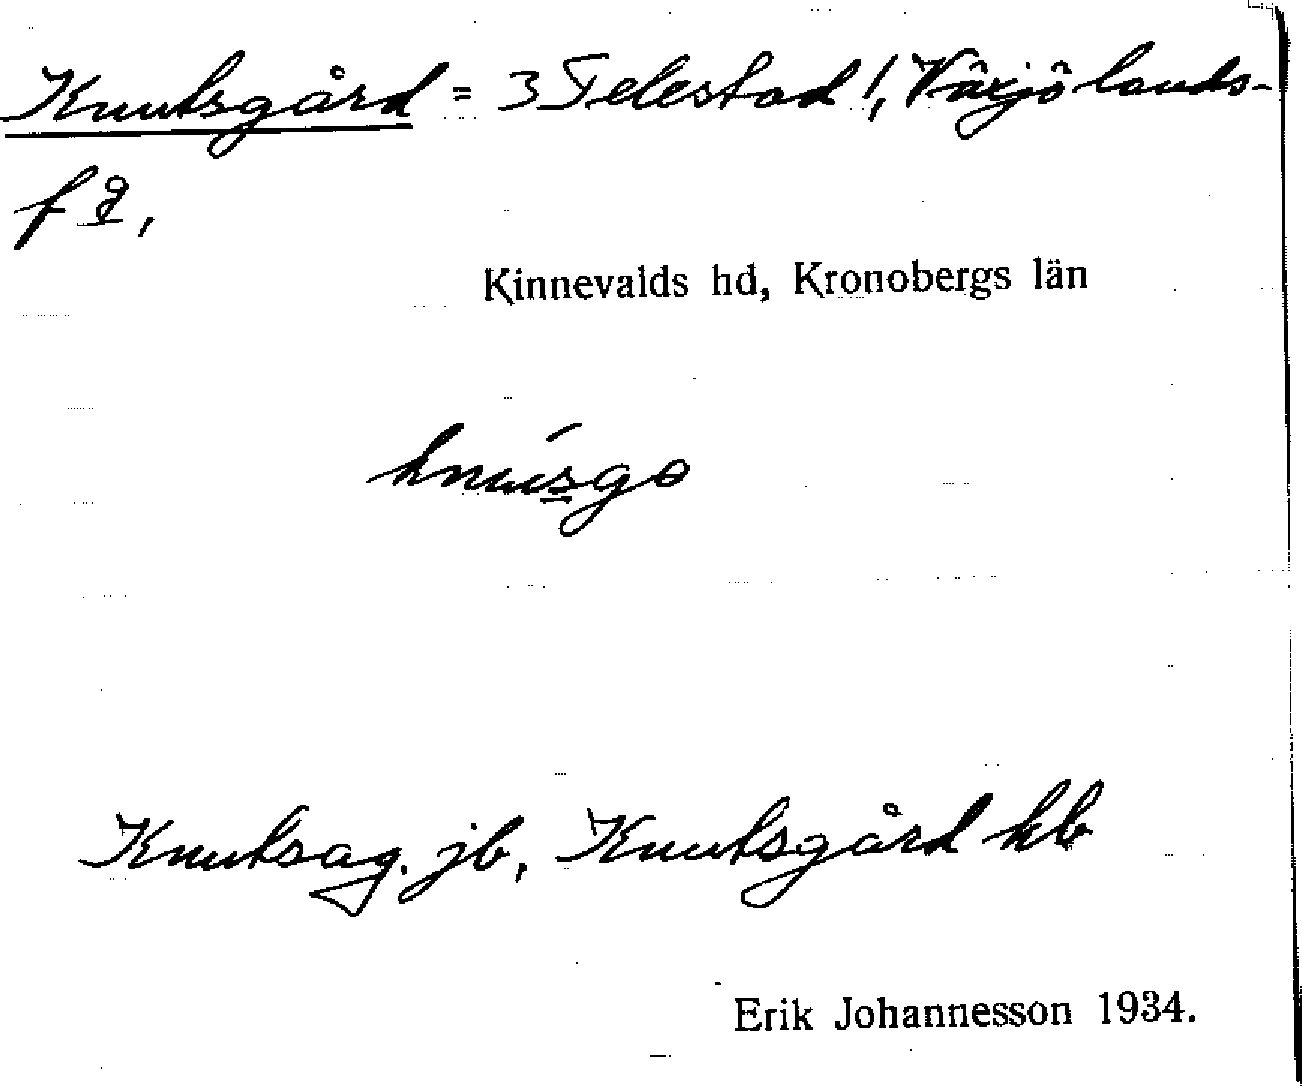 Knutsgård = 3 Telestad !, Växjö lands-
fg,
Kinnevalds hd, Kronobergs län
knúsgo
Knutsag. jb, Knutsgård kb
Erik Johannesson 1934.